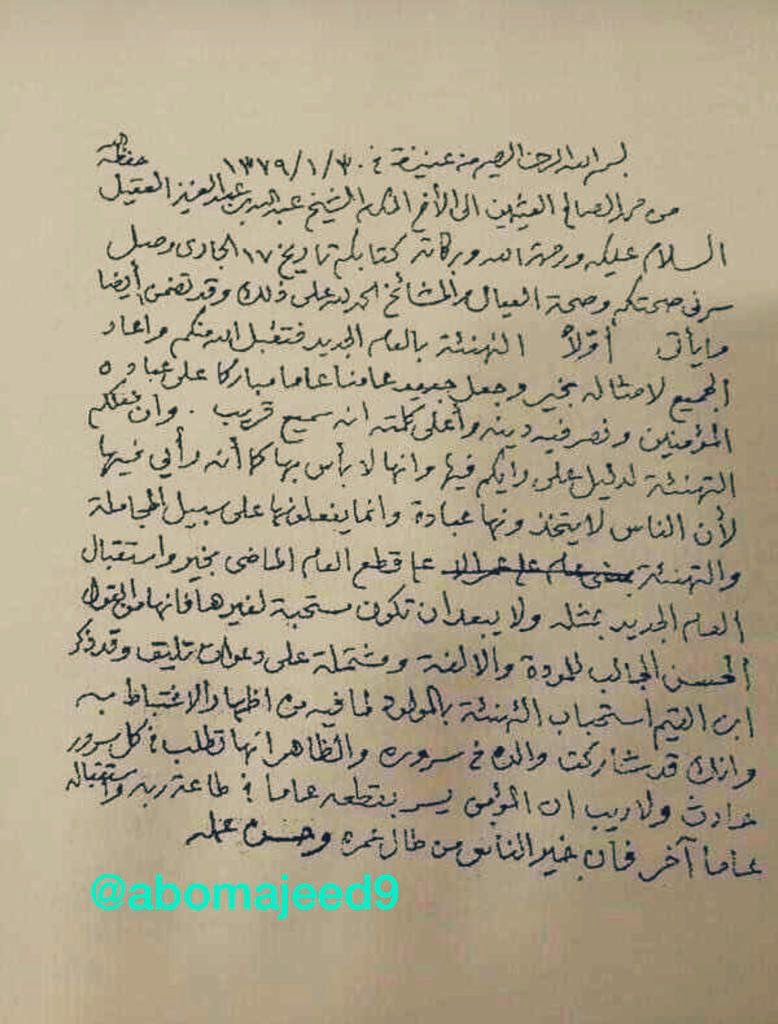 بسم الله الرحمن الرحيم من عنيزة في ٣٠/١/١٣٧٩
من محمد الصالح العثيمين الى الأخ المكرم الشيخ عبد الله بن عبد العزيز العقيل حفظه الله
السلام عليكم ورحمة الله وبركاته كتابكم تاريخ ١٧ الجاري وصل
سرني صحتكم وصحة العيال والمشائخ الحمد لله على ذلك وقد تضمن أيضا
ما يأتي أوّلاً التهنئة بالعام الجديد فتقبل الله منكم واعاد
الجميع لامثاله بخير وجعل جميع عامنا عاما مباركا على عباده
المؤمنين ونصر فيه دينه وأعلى كلمته انه سميع قريب . وان فعلكم
التهنئة لدليل على رأيكم فيها وانها لا بأس بها كما أنه رأيي فيها
لأن الناس لا يتخذونها عبادة وانما يفعلونها على سبيل المجاملة
والتهنئة عما قطع العام الماضي بخير واستقبال
العام الجديد بمثله ولا يبعد ان تكون مستحبة لغيرها فانها من القول
الحسن الجالب للمودة والالفة ومشتملة على دعوات تليق وقد ذكر
ابن القيم استحباب التهنئة بالمولود لما فيه من اظهار الاغتباط به
وانك قد شاركت والده في سروره والظاهر انها تطلب في كل سرور
حادث ولا ريب ان المؤمن يسر بقطعه عاما في طاعة ربه واستقباله
عاما آخر فان خير الناس من طال عمره وحسن عمله
@abomajeed9